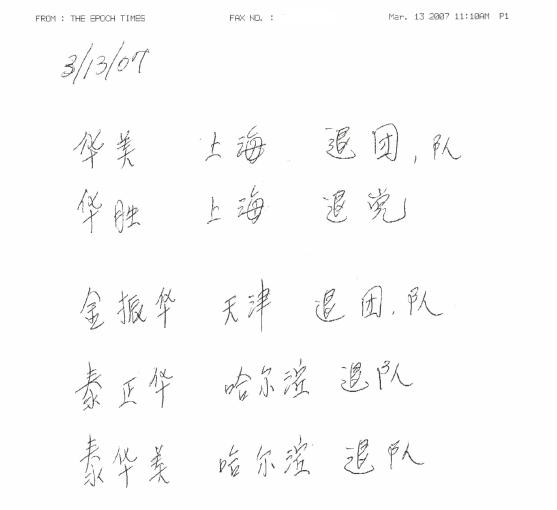 FROM : THE EPOCH TIMES FAX NO. : Mar. 13 2007 11:10AM P1
3/13/07
华美 上海 退团,队
华胜 上海 退党
金振华 天津 退团,队
秦正华 哈尔滨 退队
秦华美 哈尔滨 退队